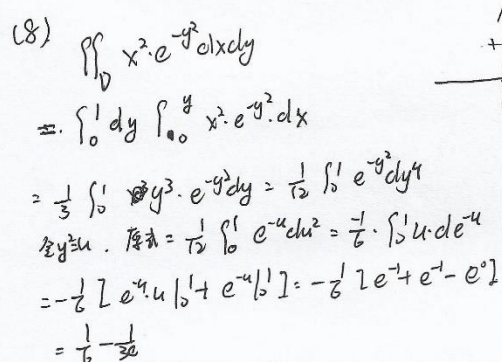 (8) ∬_D x²·e^{-y²}dxdy
=. ∫₀¹ dy ∫₀^y x²·e^{-y²}·dx
= 1/3 ∫₀¹ y³·e^{-y²}dy = 1/12 ∫₀¹ e^{-y²}dy⁴
令y²=u. 原式 = 1/12 ∫₀¹ e^{-u}du² = -1/6·∫₀¹u·de^{-u}
= -1/6 [e^{-u}·u|₀¹ + e^{-u}|₀¹] = -1/6 [e^{-1}+e^{-1}-e⁰]
= 1/6 - 1/3e
+